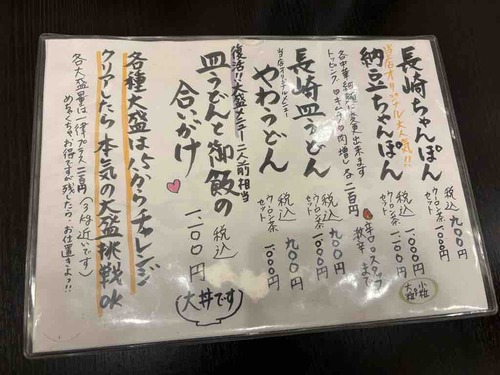 長崎ちゃんぽん
税込 九〇〇円
ウーロン茶セット 一〇〇〇円
当店オリジナル大人気!!
納豆ちゃんぽん
税込 一〇〇〇円
ウーロン茶セット
各中華細麺に変更出来ます
トッピング
キムチ
肉増し
各二百円
辛口スタッフ
激辛まで
大盛
小盛
長崎皿うどん
税込 九〇〇円
ウーロン茶セット 一〇〇〇円
当店オリジナルメニュー
やわうどん
税込 九〇〇円
ウーロン茶セット 一〇〇〇円
復活!!大盛メニュー 二人前相当
皿うどんと御飯の
合いがけ
税込 一二〇〇円
大丼です
各種大盛は、ここからチャレンジ
クリアしたら本気の大盛挑戦OK
各大盛量は一律プラス二百円
(2倍近いです)
めちゃくちゃお得ですが残したら、お仕置きよっ!!